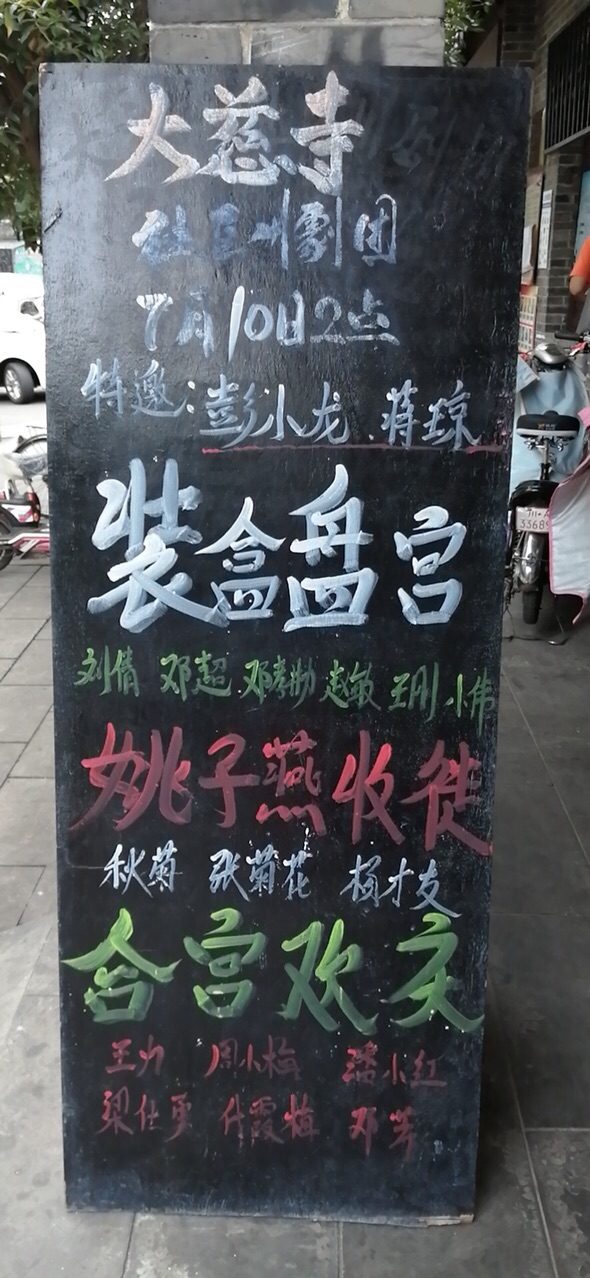 大慈寺
川剧团
7月10日2点
特邀:彭小龙 蒋琼
装盒盘宫
刘倩 邓超 邓孝勤 赵敏 王刚 小伟
姚子燕收徒
秋菊 张菊花 杨才友
合宫欢庆
王力 周小梅 小红
梁仕勇 付霞梅 邓芳